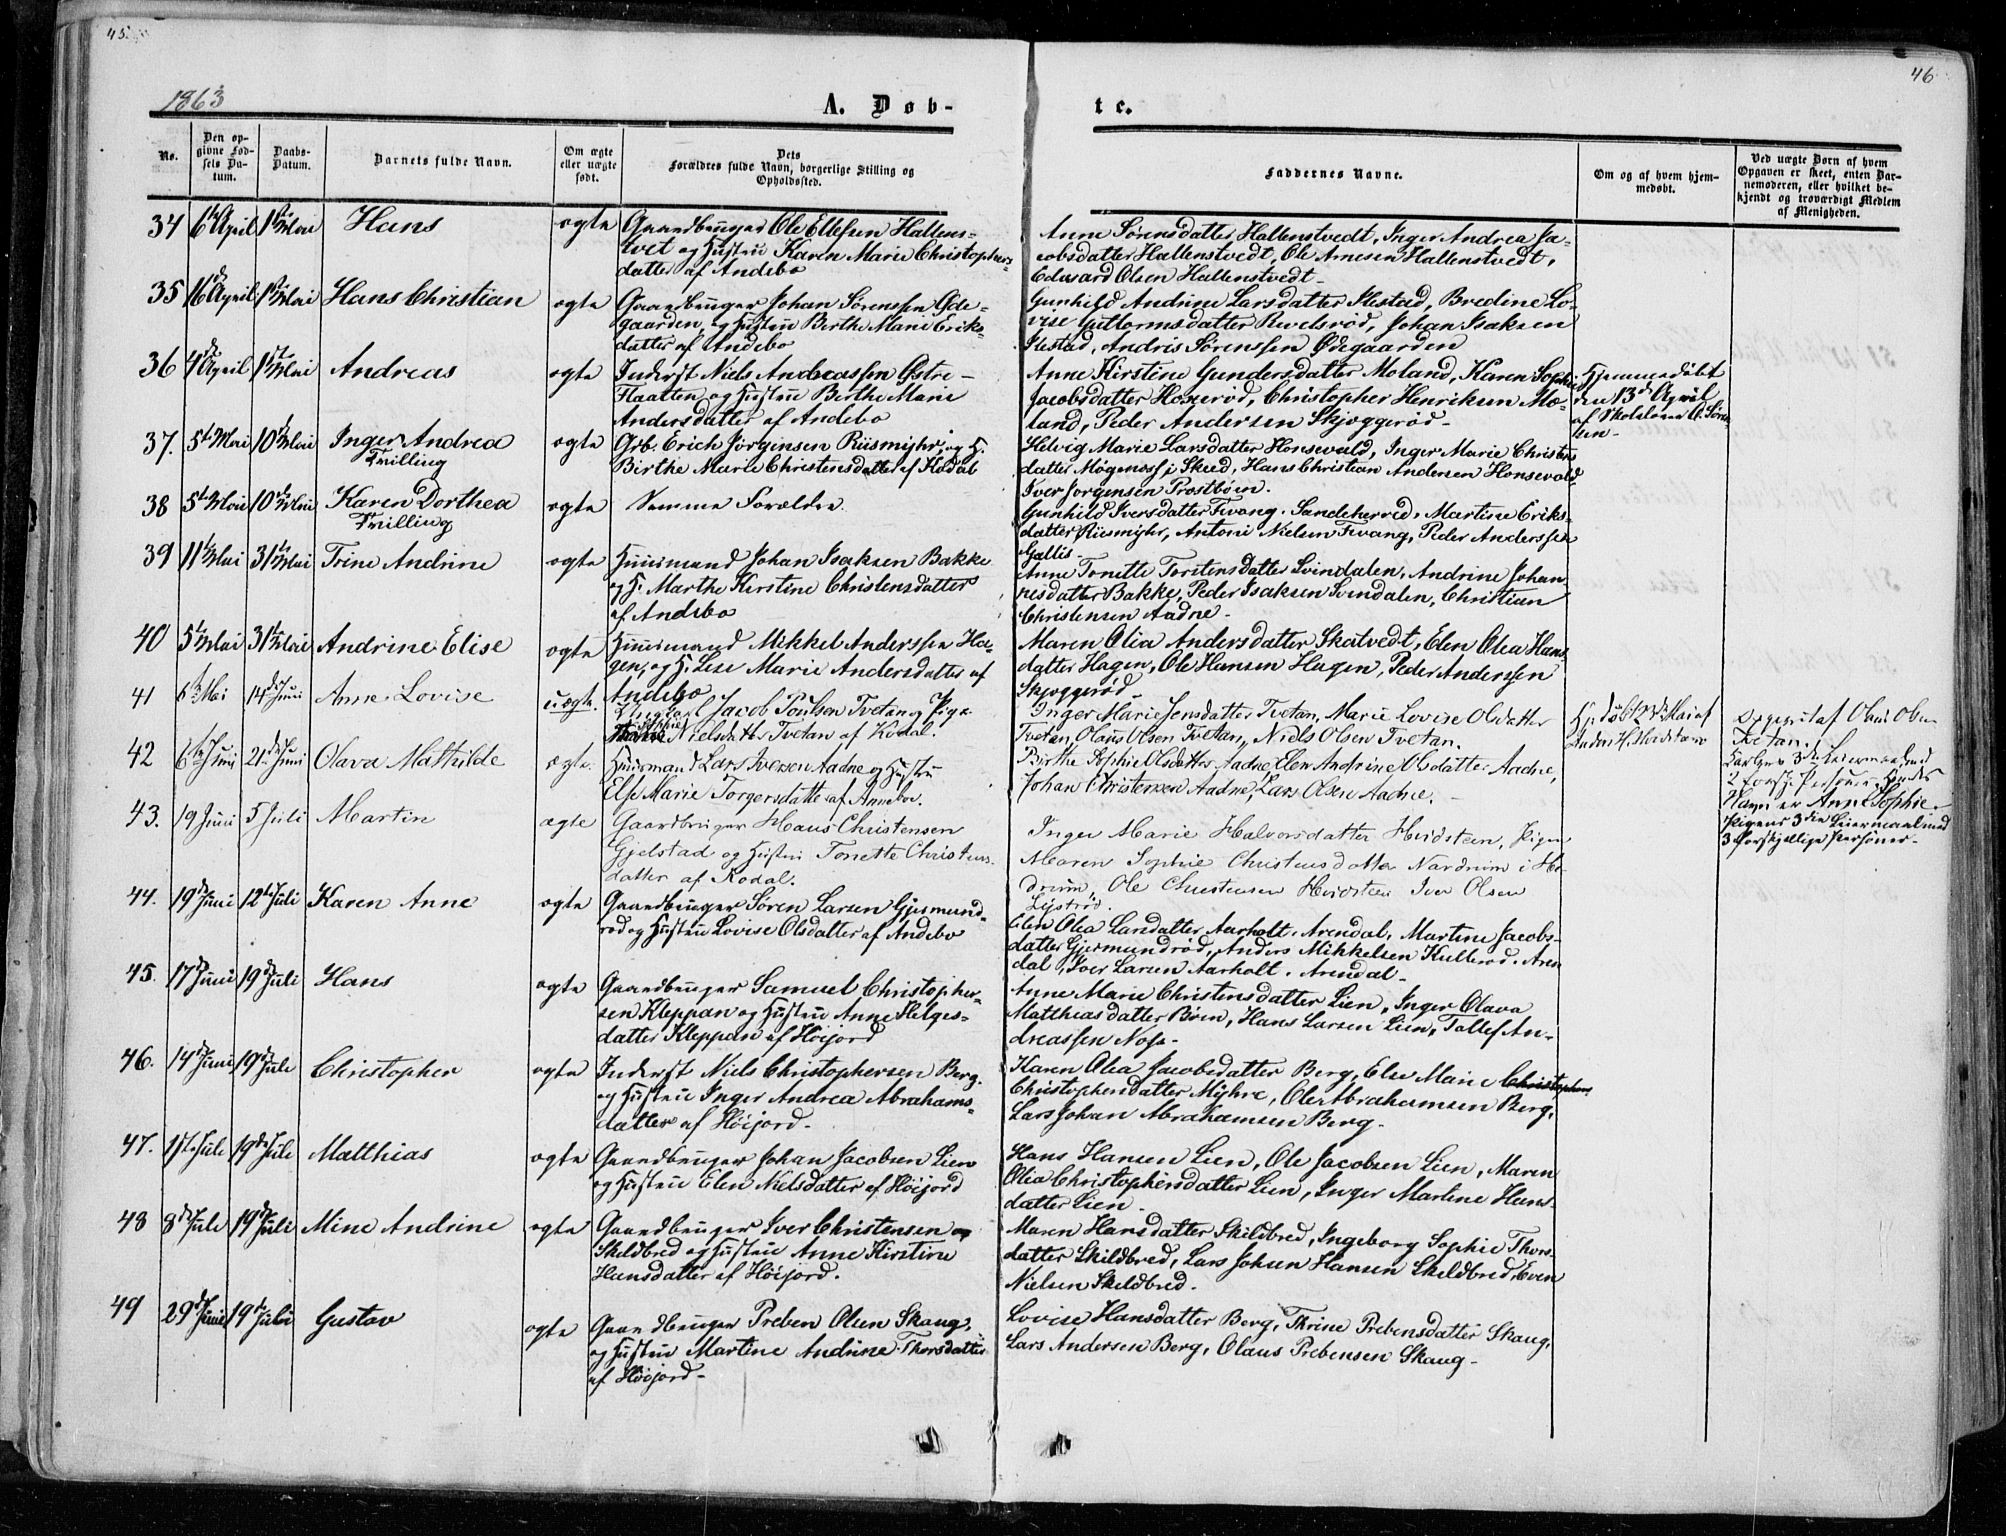 45
46
1863
A. Døb-
te.
No.
Den op-
givne Fød-
sels Da-
tum.
Daabs-
Datum.
Barnets fulde Navn.
Om ægte
eller uægte
født.
Dets
Forældres fulde Navn, borgerlige Stilling og
Opholdssted.
Faddernes Navne.
Om og af hvem hjem-
medøbt.
Ved uægte Børn af hvem
Opgaven er skeet, enten Bar-
nemoderen, eller hvilket be-
kjendt og troværdigt Medlem
af Menigheden.
34 6te April 1ste Mai Hans ægte Gaardbruger Ole Ellefsen Hallens-
tvet og Hustru Karen Marie Christophers-
datter af Andebo
Anne Sørensdatter Hallenstvedt, Inger Andrea Ja-
cobsdatter Hallenstvedt, Ole Arnesen Hallenstvedt,
Edvard Olsen Hallenstvedt-
35 16de April 1ste Mai Hans Christian ægte Gaardbruger Johan Sørenssen Øde-
gaarden, og Hustru Berthe Marie Eriks-
datter af Andebo
Gunhild Andrine Larsdatter Ilestad, Bredine Lo-
vise Guttormsdatter Revelsrød, Johan Isaksen
Ilestad, Andris Sørenssen Ødegaarden
36 4de April 1ste Mai Andreas ægte Inderst Niels Andreassen Østre-
Flaatten og Hustru Birthe Marie
Andersdatter af Andebo
Anne Kirstine Gundersdatter Moland, Karen Sophie
Jacobsdatter Honerød, Christopher Henriksen Mo-
land, Peder Andersen Skjøggerød-
Hjemmedøbt
den 13de April
af Skolelærer A. Søren-
sen-
37. 5te Mai 10de Mai Inger Andrea
Tvilling ægte Grb. Erich Jørgensen Riismyhr, og H.
Birthe Marie Christensdatter af Kodal
Helvig Marie Larsdatter Honsevald, Inger Marie Christens
datter Møgenoss i Skeed, Hans Christian Andersen Honsevald,
Iver Jorgensen Prestbøen.
38 5te Mai 10de Mai Karen Dorthea
Tvilling ægte Samme Forældre.
Gunhild Iversdatter Fevang, Sandeherred, Martine Eriks-
datter Riismyhr, Antoni Nielsen Fevang, Peder Anderssen
Gallis-
39 11te Mai 31te Mai Trine Andrine ægte Huusmand Johan Isaksen Bakke
og H. Marthe Kirstine Christensdatter
af Andebo
Anne Tonette Torstensdatter Svindalen, Andrine Johan-
nesdatter Bakke, Peder Isaksen Svendalen, Christian
Christensen Aadne-
40 5te Mai 31te Mai Andrine Elise ægte Huusmand Mikkel Anderssen Ha-
gen, og H. Lise Marie Andersdatter af
Andebo
Maren Olia Andersdatter Skatvedt, Elen Olea Hans
datter Hagen, Ole Hansen Hagen, Peder Anderssen
Skjøggerød-
41 6te Mai 14de Juni Anne Lovise uægte. Jacob Poulsen Tvetan og Pige
Nielsdatter Tvetan af Kodal.
Inger Marie Jensdatter Tvetan, Marie Lovise Olsdatter
Tvetan, Olaus Olsen Tvetan, Niels Olsen Tvetan.
Tvetan.
Navn er Anne Sophie.
Pigens 3die Leiermaal med
3 forskjellige Personer.
42 6te Juni 21de Juni Olava Mathilde ægte. Huusmand Lars Iversen Aadne og Hustru
Else Marie Torgersdatter af Anneboe.
Birthe Sophie Olsdatter Aadne, Elen Andrine Olsdatter Aadne,
Johan Christensen Aadne, Lars Olsen Aadne.-
43. 19 Juni 5 Juli Martin ægte Gaardbruger Hans Christensen
Gjelstad og Hustru Tonette Christens-
datter af Kodal.
Inger Marie Halvorsdatter Hvidsteen, Pigen
Maren Sophie Christensdatter Nordrum i He-
drum, Ole Christensen Hvidsteen Iver Olsen
44. 19de Juni 12te Juli Karen Anne ægte Gaardbruger Søren Larsen Gjermund-
rød og Hustru Lovise Olsdatter af Andebo
Elen Olea Larsdatter Aarholt, Arendal, Martine Jacobs-
datter Gjermundrød, Anders Mikkelsen Kullerød. Aren
dal, Iver Larsen Aarholt, Arendal-
45. 17de Juni 19de Juli Hans ægte Gaardbruger Samuel Christopher-
sen Kleppan og Hustru Anne Helges-
datter Kleppan af Höijord
Anne Marie Christensdatter Lien, Inger Olava
Matthiasdatter Böen, Hans Larsen Lien, Tollef An-
dreassen Nose-
46. 14de Juni 19de Jule Christopher ægte Inderst Niels Christophersen Berg.
og Hustru Inger Andrea Abrahams-
datter af Höijord-
Karen Olea Jacobsdatter Berg, Else Marie Christophers
Christophersdatter Myhre, Ole Abrahamsen Berg,
Lars Johan Abrahamsen Berg-
47. 1ste Jule 19de Jule Matthias ægte Gaardbruger Johan Jacobsen Lien
og Hustru Elen Nielsdatter af Höijord
Hans Hansen Lien, Ole Jacobsen Lien, Maren
Olia Christophersdatter Lien, Inger Martine Hans-
datter Lien-
48 8de Jule 19de Juli Mine Andrine ægte Gaardbruger Iver Christensen og
Skildbred og Hustru Anne Kirstine
Hansdatter af Höijord.
Maren Hansdatter Skildbred, Ingeborg Sophie Thors-
datter Skildbred, Lars Johan Hansen Skildbred, Even
Nielsen Skildbred.
49 29de Juni 19de Juli Gustav ægte Gaardbruger Preben Olsen Skaug,
og Hustru Martine Andrine Thorsdatter
af Höijord-
Lovise Hansdatter Berg, Thrine Prebensdatter Skaug,
Lars Andersen Berg, Olaus Prebensen Skaug-